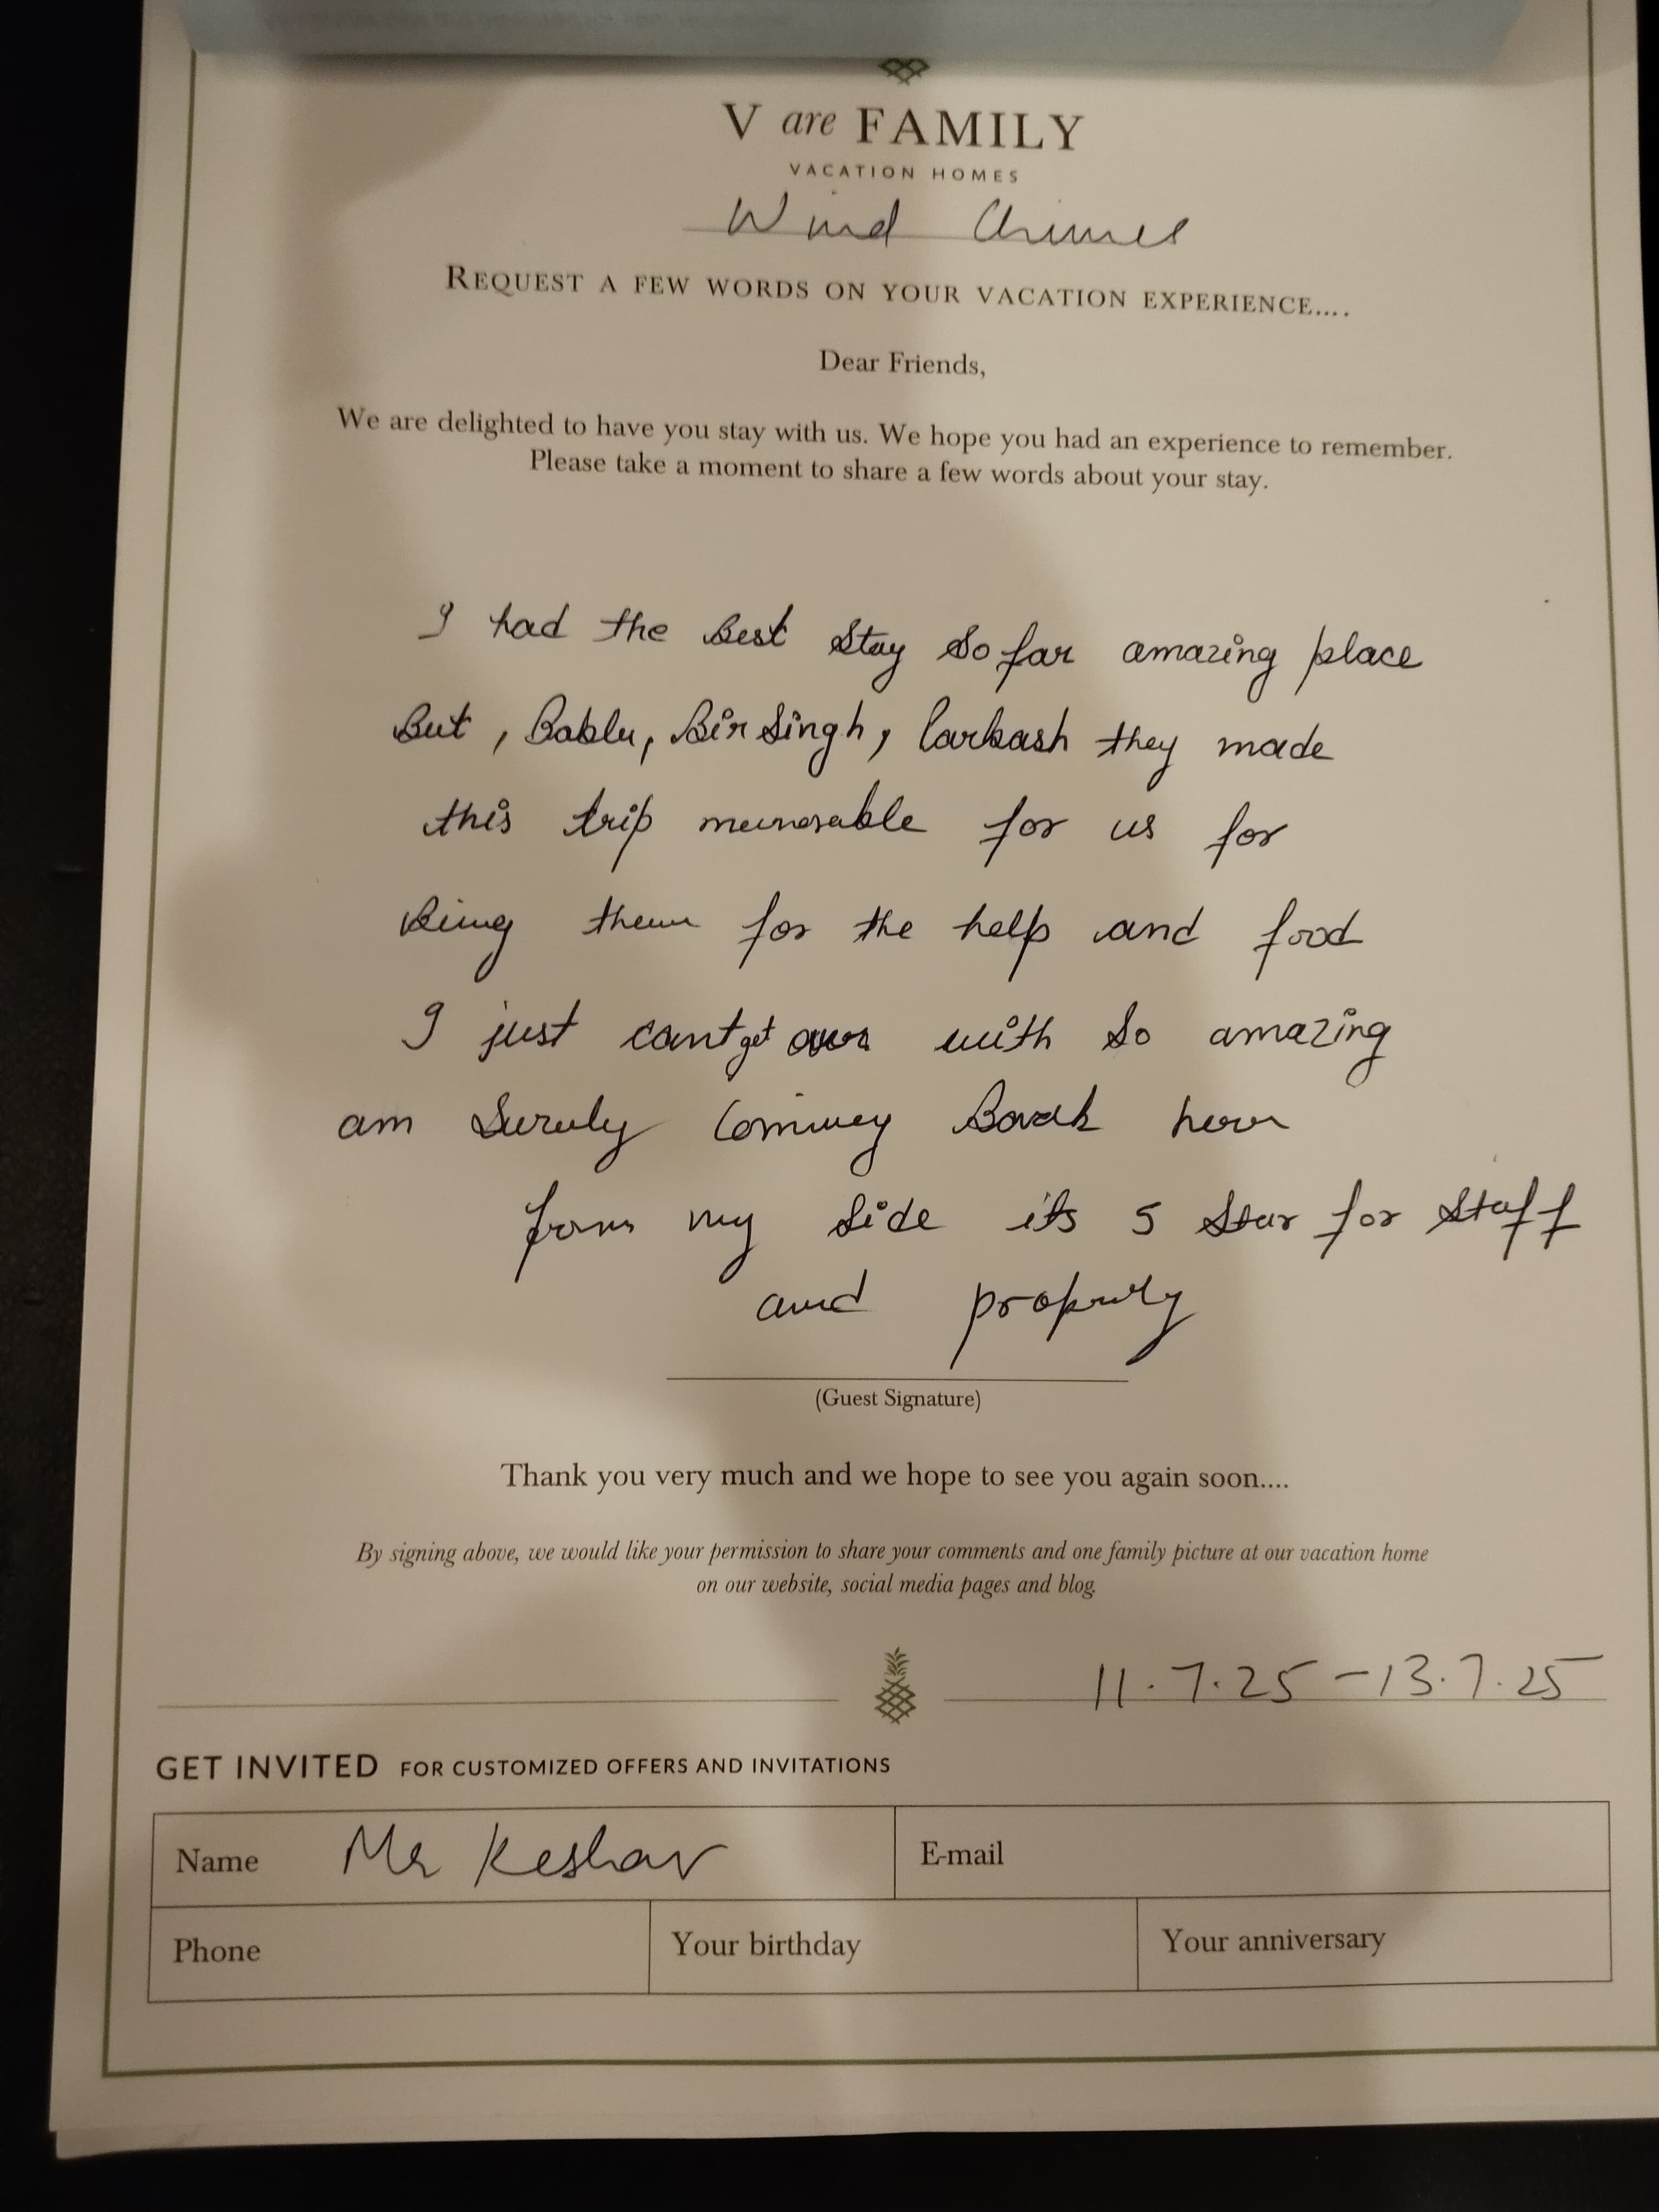 V are FAMILY
VACATION HOMES
Wind Chimes
REQUEST A FEW WORDS ON YOUR VACATION EXPERIENCE....
Dear Friends,
We are delighted to have you stay with us. We hope you had an experience to remember.
Please take a moment to share a few words about your stay.
I had the Best Stay So far amazing place
But , Bablu, Bir Singh, Parkash they made
this trip memorable for us for
Being them for the help and food
I just cant get over with so amazing
am Surely Coming Back here
from my side its 5 Star for Staff
and property
(Guest Signature)
Thank you very much and we hope to see you again soon....
By signing above, we would like your permission to share your comments and one family picture at our vacation home
on our website, social media pages and blog.
11.7.25 - 13.7.25
GET INVITED FOR CUSTOMIZED OFFERS AND INVITATIONS
Name Mr Keshav E-mail
Phone Your birthday Your anniversary